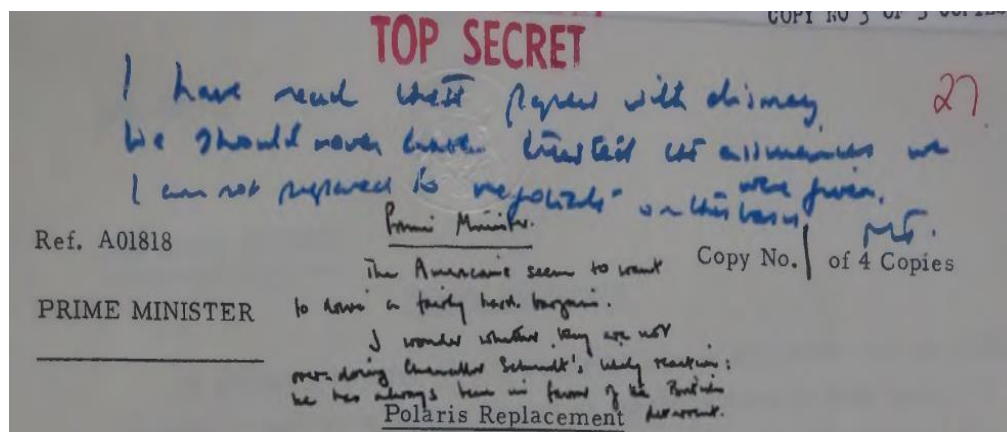 COPY NO 3 OF 3 COPIES
TOP SECRET
27
I have read these papers with dismay.
We should never have trusted the assurances we
were given.
I am not prepared to negotiate on this basis
MT.
Prime Minister.
Ref. A01818
Copy No. 1 of 4 Copies
The Americans seem to want
to drive a fairly hard bargain.
PRIME MINISTER
I wonder whether they are not
over-doing Chancellor Schmidt's likely reaction:
he has always been in favour of the British
deterrent.
Polaris Replacement